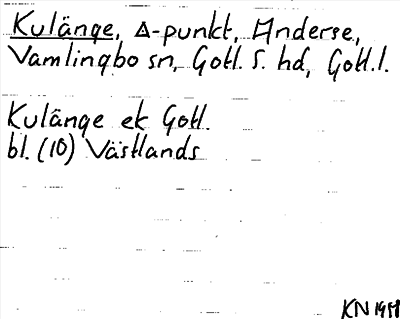 Kulänge, Δ-punkt, Anderse,
Vamlingbo sn, Gotl. S. hd, Gotl. l.
Kulänge ek Gotl.
bl. (10) Västlands
KN